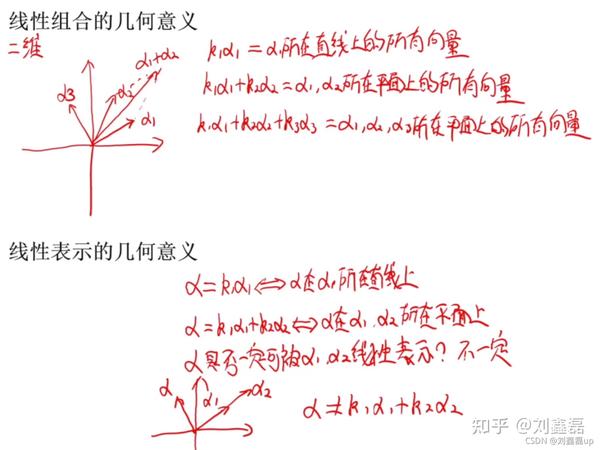 线性组合的几何意义
二维
α₁+α₂
α3
α₂
α₁
k₁α₁=α₁所在直线上的所有向量
k₁α₁+k₂α₂=α₁,α₂所在平面上的所有向量
k₁α₁+k₂α₂+k₃α₃=α₁,α₂,α₃所在平面上的所有向量
线性表示的几何意义
α=k₁α₁⇔α在α₁所在直线上
α=k₁α₁+k₂α₂⇔α在α₁,α₂所在平面上
α是否一定可被α₁,α₂线性表示?不一定
α
α₁
α₂
α≠k₁α₁+k₂α₂
知乎 @刘鑫磊
CSDN @刘鑫磊up